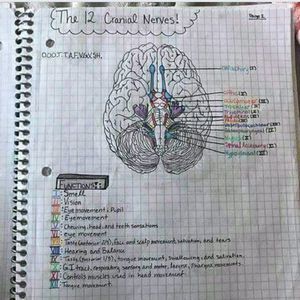 The 12 Cranial Nerves!
Page 2
O.O.O.T.T.A.F.V.G.V.S.H.
Olfactory (I)
Optic (II)
Oculomotor (III)
Trochlear (IV)
Trigeminal (V)
Abducens (VI)
Facial (VII)
Vestibulocochlear (VIII)
Glossopharyngeal (IX)
Vagus (X)
Spinal Accessory (XI)
Hypoglossal (XII)
FUNCTIONS:
I: Smell
II: Vision
III: Eye movement; Pupil
IV: Eye movement
V: Chewing, head and teeth sensations
VI: eye movement
VII: Taste (anterior 2/3), face and scalp movement, salivation, and tears
VIII: Hearing and Balance
IX: Taste (posterior 1/3), tongue movement, swallowing, and salivation
X: G.I tract, respiratory, sensory and motor, larynx, pharynx movements.
XI: Controls muscles used in head movement
XII: Tongue movement.